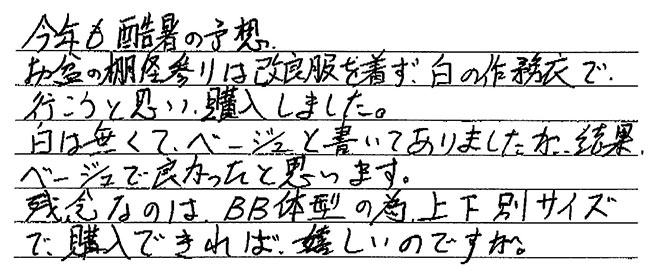 今年も酷暑の予想.
お盆の棚経参りは改良服を着ず、白の作務衣で、
行こうと思い、購入しました。
白は無くて、ベージュと書いてありましたが、結果、
ベージュで良かったと思います。
残念なのは、BB体型の為、上下別サイズ
で、購入できれば、嬉しいのですが。